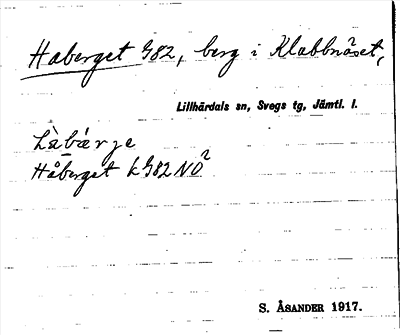 Haberget 982, berg i Klabbnäset,
Lillhärdals sn, Svegs tg, Jämtl. l.
Håberget k 982 NO²
S. ÅSANDER 1917.